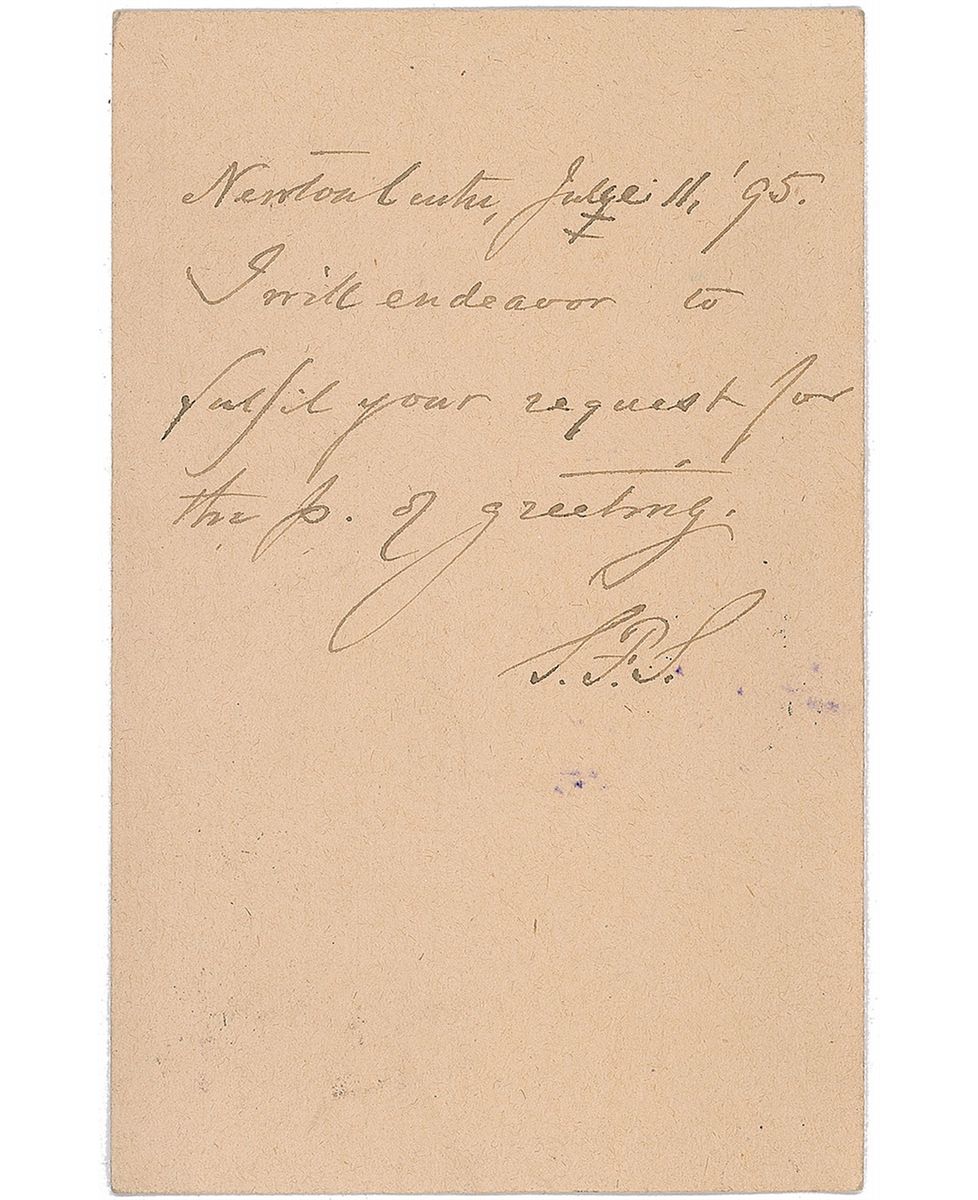 Newton Centre, July 11, '95.
I will endeavor to
fulfil your request for
the p. of greeting.
S.F.S.